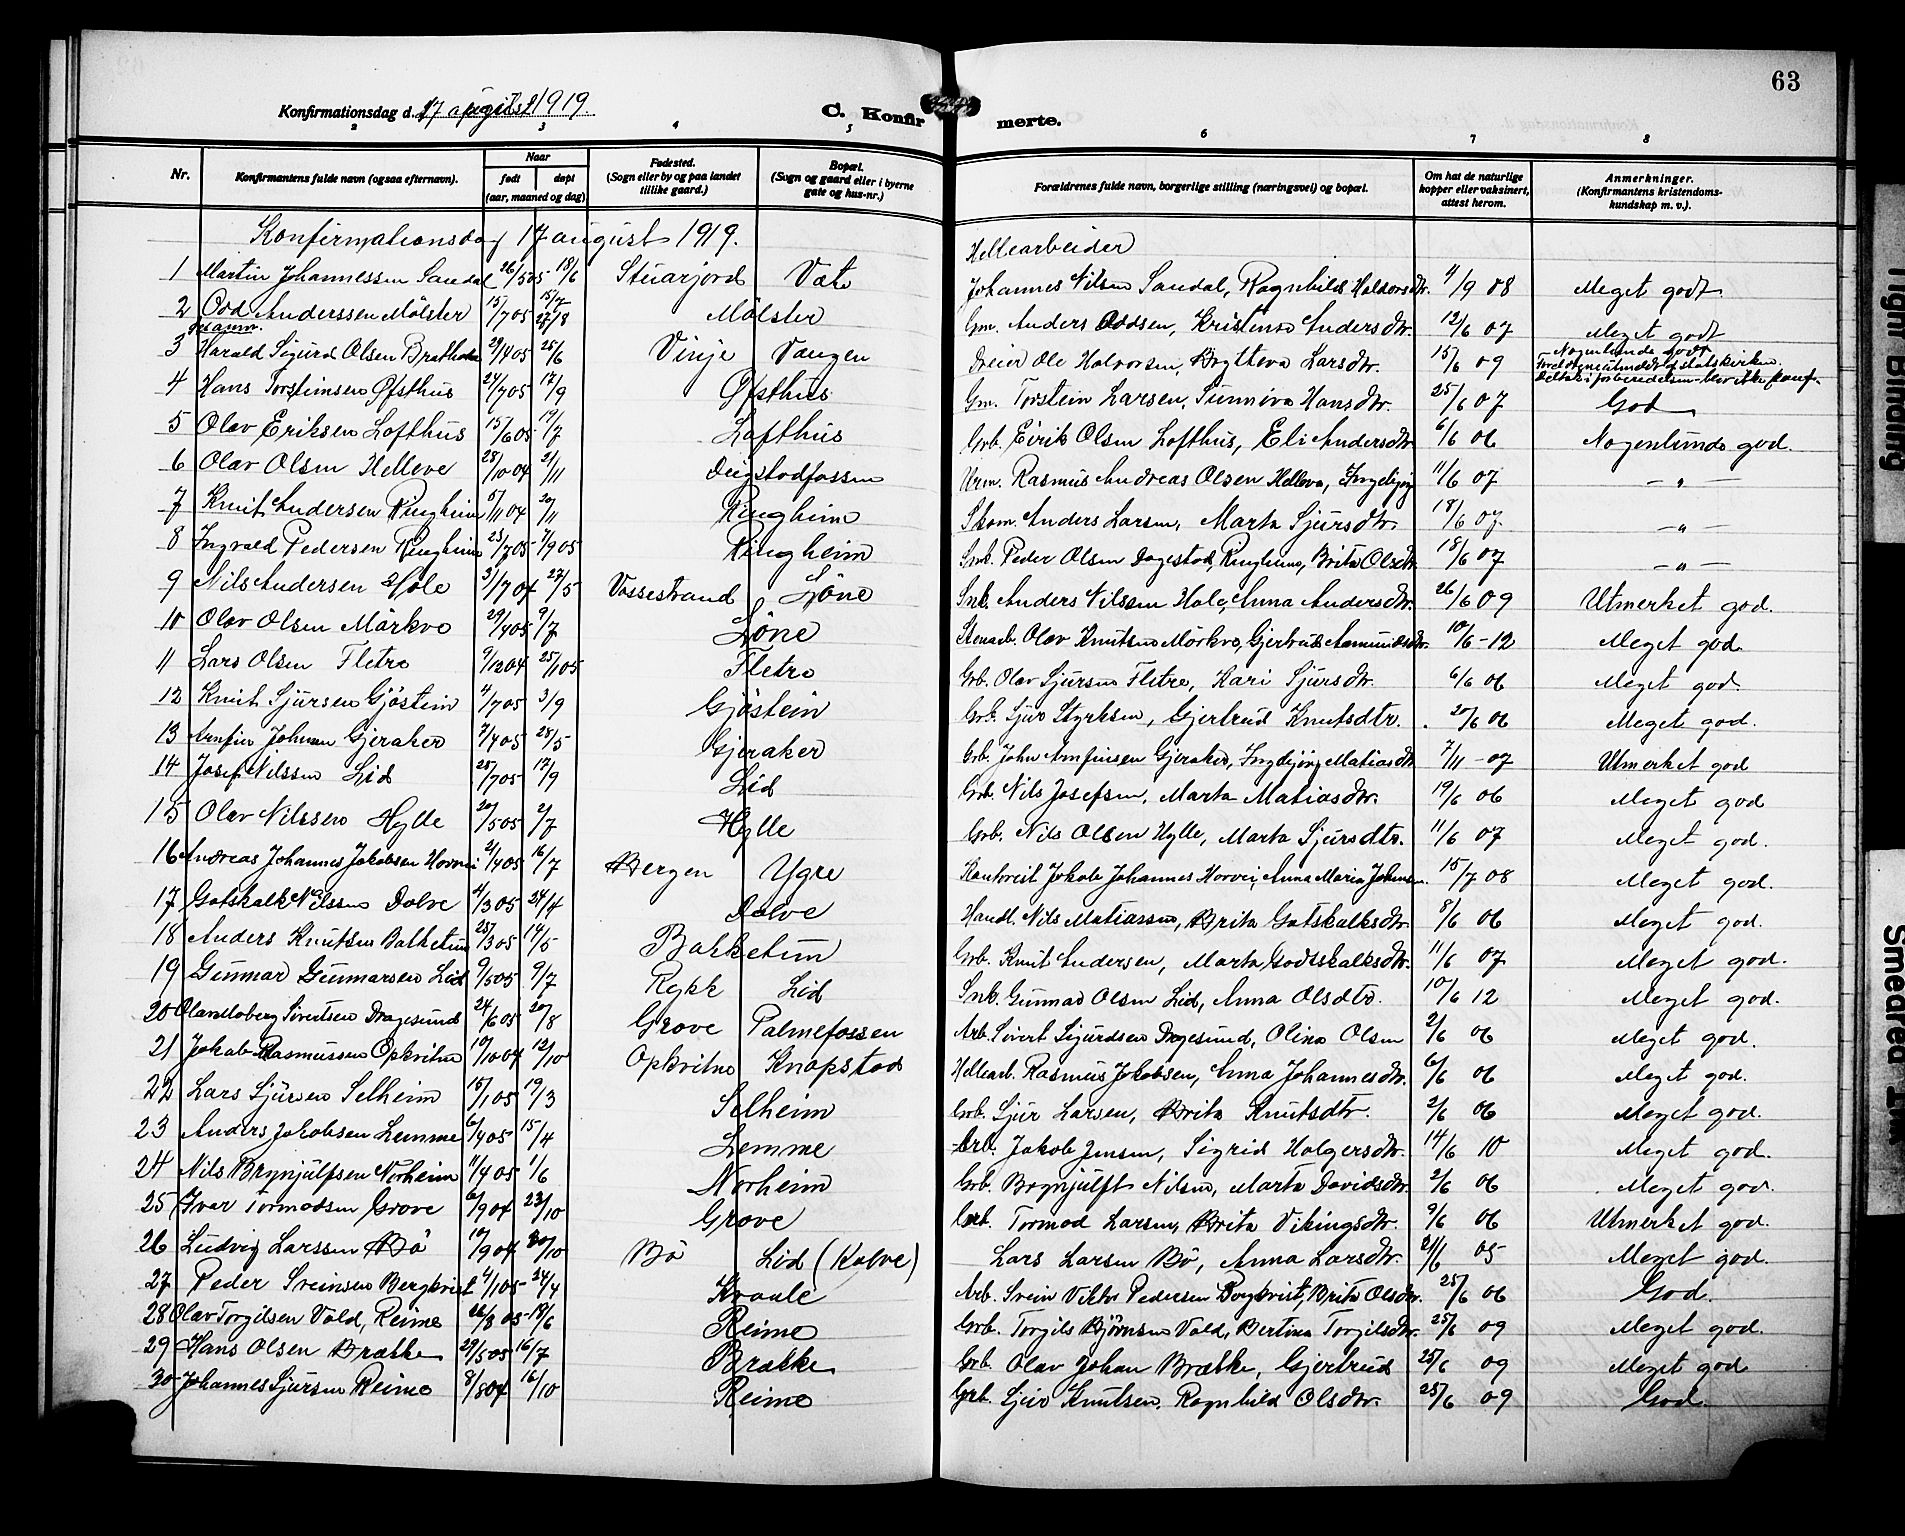 63
Konfirmationsdag d. 17 august 1919.
C. Konfirmerte.
2 3 4 5 6 7 8
Nr. Konfirmantens fulde navn (ogsaa efternavn). Naar født døpt (aar, maaned og dag) Fødested. (Sogn eller by og paa landet tillike gaard.) Bopæl. (Sogn og gaard eller i byerne gate og hus-nr.) Forældrenes fulde navn, borgerlige stilling (næringsvei) og bopæl. Om hat de naturlige kopper eller vaksinert, attest herom. Anmerkninger. (Konfirmantens kristendomskundskap m. v.).
Konfirmationsdag 17 august 1919.
Hellearbeider
1 Martin Johannessen Sandal 26/5 05 18/6 Væte Johannes Nilsen Sandal, Ragnhild Haldorsdtr. 4/9 08 Meget godt
2 Odd Anderssen Mölster 15/7 05 Mölster Gm. Anders Oddsen, Kristense Andersdtr. 12/6 07 Meget godt
3 Harald Sigurd Olsen 29/4 05 25/6 Vinje Vangen Dreier Ole Halvorsen, Brytteva Larsdtr. 15/6 09 Nogenlunde godt
Foreldrene utmeldt af statskirken.
Deltok i forberedelsen - blev ikke konf.
4 Hans Torsteinsen Øfsthus 24/7 05 17/9 Øfsthus Gm. Torstein Larsen, Sunniva Hansdtr. 25/6 07 God
5 Olav Eriksen Lofthus 15/6 05 19/7 Lofthus Grb. Eirik Olsen Lofthus, Eli Andersdtr. 6/6 06 Nogenlunde god.
6 Olav Olsen Helleve 28/10 04 21/11 Urm. Rasmus Andreas Olsen Helleve, Ingebjørg 11/6 07 - " -
7 Knut Andersen Ringheim 5/11 04 20/11 Ringheim Skom. Anders Larsen, Marta Sjursdtr. 18/6 07. - " -
8 Ingvald Pedersen Ringheim 23/7 05 7/9 05 Ringheim Snk. Peder Olsen Dagestad, Ringheim, Brita Olsdtr. 18/6 07 - " -
9 Nils Andersen Hole 3/7 04 27/5 Vossestrand Löne Snk. Anders Nilssen Hole, Anna Andersdtr. 26/6 09 Utmerket god.
10 Olav Olsen Mörkve 29/4 05 9/7 Löne Stenarb. Olav Knutsen Mörkve, Gjertrud Aamundsdtr. 10/6 - 12 Meget god.
11 Lars Olsen Fletre 9/12 04 25/1 05 Fletre Grb. Olav Sjursen Fletre, Kari Sjursdtr. 6/6 06 Meget god.
12 Knut Sjursen Gjöstein 4/7 05 3/9 Gjöstein Grb. Sjur Styrksen, Gjertrud Knutsdtr. 20/6 06 Meget god.
13 Arnfin Johnsen Gjeraker 7/4 05 28/5 Gjeraker Grb. John Arnfinsen Gjeraker, Ingebjörg Matiasdtr 7/11 - 07 Utmerket god
14 Josef Nilssen Lid 25/7 05 17/9 Lid Grb. Nils Josefsen, Marta Matiasdtr. 19/6 06 Meget god
15 Olav Nilssen Hylle 20/5 05 2/7 Hylle Grb. Nils Olsen Hylle, Marta Sjursdtr. 11/6 07 Meget god.
16 Andreas Johannes Jakobsen Horvei 21/4 05 16/7 Bergen Ygre Jakob Johannes Horvei, Anna Maria Johnsen. 15/7 08 Meget god.
17 Gotskalk Nilssen Dolve 4/3 05 24/4 Dolve Handl. Nils Matiassen, Brita Gotskalksdtr. 8/6 06 Meget god.
18 Anders Knutsen Bakketun 25/3 05 14/5 Bakketun Grb. Knut Andersen, Marta Godsskalksdtr. 11/6 07 Meget god.
19 Gunnar Gunnarsen Lid 9/5 05 9/7 Rykk Lid Snk. Gunnar Olsen Lid, Anna Olsdtr. 10/6 12 Meget god.
20 Sivertsen Dragesund 24/6 05 20/8 Grove Palmefossen Arb. Sivert Sigurdsen Dragesund, Olina Olsen 2/6 06 Meget god.
21 Jakob Rasmussen Opkvitne 10/10 04 12/10 Opkvitne Knapstad Hellearb. Rasmus Jakobsen, Anna Johannesdtr. 6/6 06 Meget god.
22 Lars Sjursen Selheim 15/1 05 19/3 Selheim Grb. Sjur Larsen, Brita Knutsdtr. 2/6 06 Meget god.
23 Anders Jakobsen Lemme 6/4 05 15/4 Lemme Grb. Jakob Jensen, Sigrid Holgersdtr. 14/6 10 Meget god.
24 Nils Brynjulfsen Norheim 11/4 05 1/6 Norheim Grb. Brynjulf Nilsen, Marta Davidsdtr. 2/6 06 Meget god.
25 Ivar Tormodsen Grove 6/9 04 23/10 Grove Grb. Tormod Larsen, Brita Vikingsdtr. 9/6 06 Utmerket god.
26 Ludvig Larssen Bö 19/9 04 30/10 Bö Lid (Kolve) Lars Larsen Bö, Anna Larsdtr. 21/6 05 Meget god.
27 Peder Sveinsen Bergkvist 4/1 05 24/4 Kvaale Arb. Svein Viktor Pedersen Bergkvist, Brita Olsdtr. 25/6 06 God.
28 Olav Torgilsen Vold, Reime 26/3 05 18/6 Reime Grb. Torgils Björnsen Vold, Bertina Torgilsdtr. 25/6 09 Meget god.
29 Hans Olsen Brække 29/5 05 16/7 Brække Grb. Olav Johan Brække, Gjertrud 25/6 09 Meget god
30 Johannes Sjursen Reime 8/8 04 16/10 Reime Grb. Sjur Knutsen, Ragnhild Olsdtr. 25/6 09 God.
Tight Binding
Smeared Ink